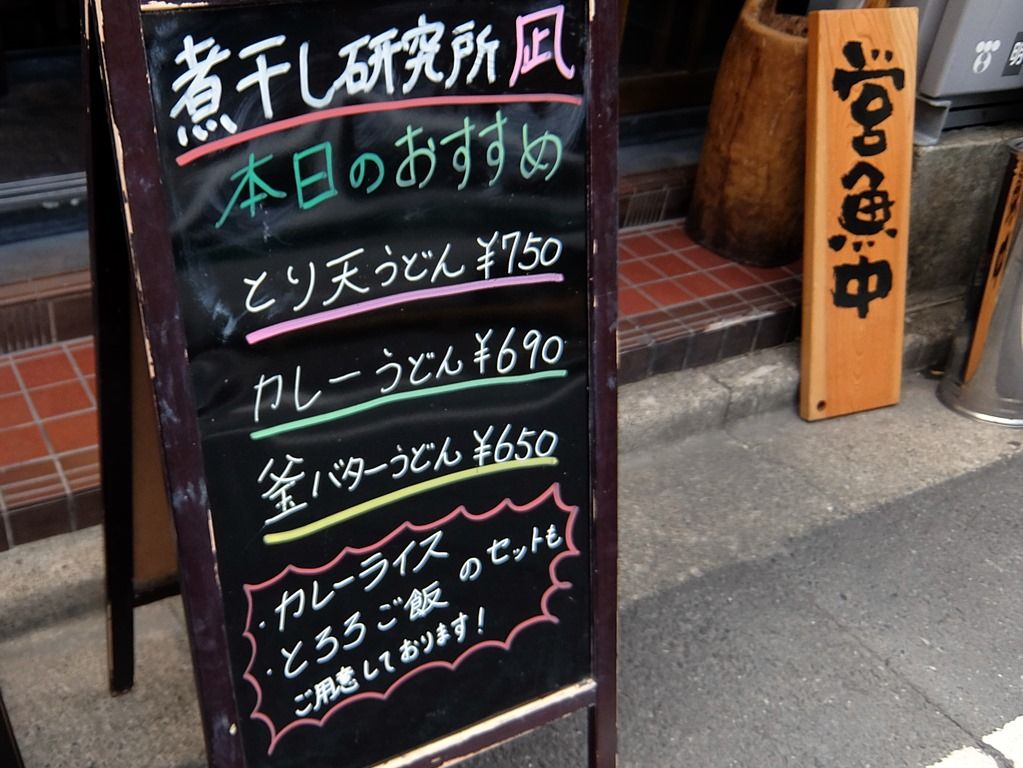 煮干し研究所 凪
本日のおすすめ
とり天うどん ¥750
カレーうどん ¥690
釜バターうどん ¥650
・カレーライス
・とろろご飯
のセットも
ご用意しております!
営魚中
明